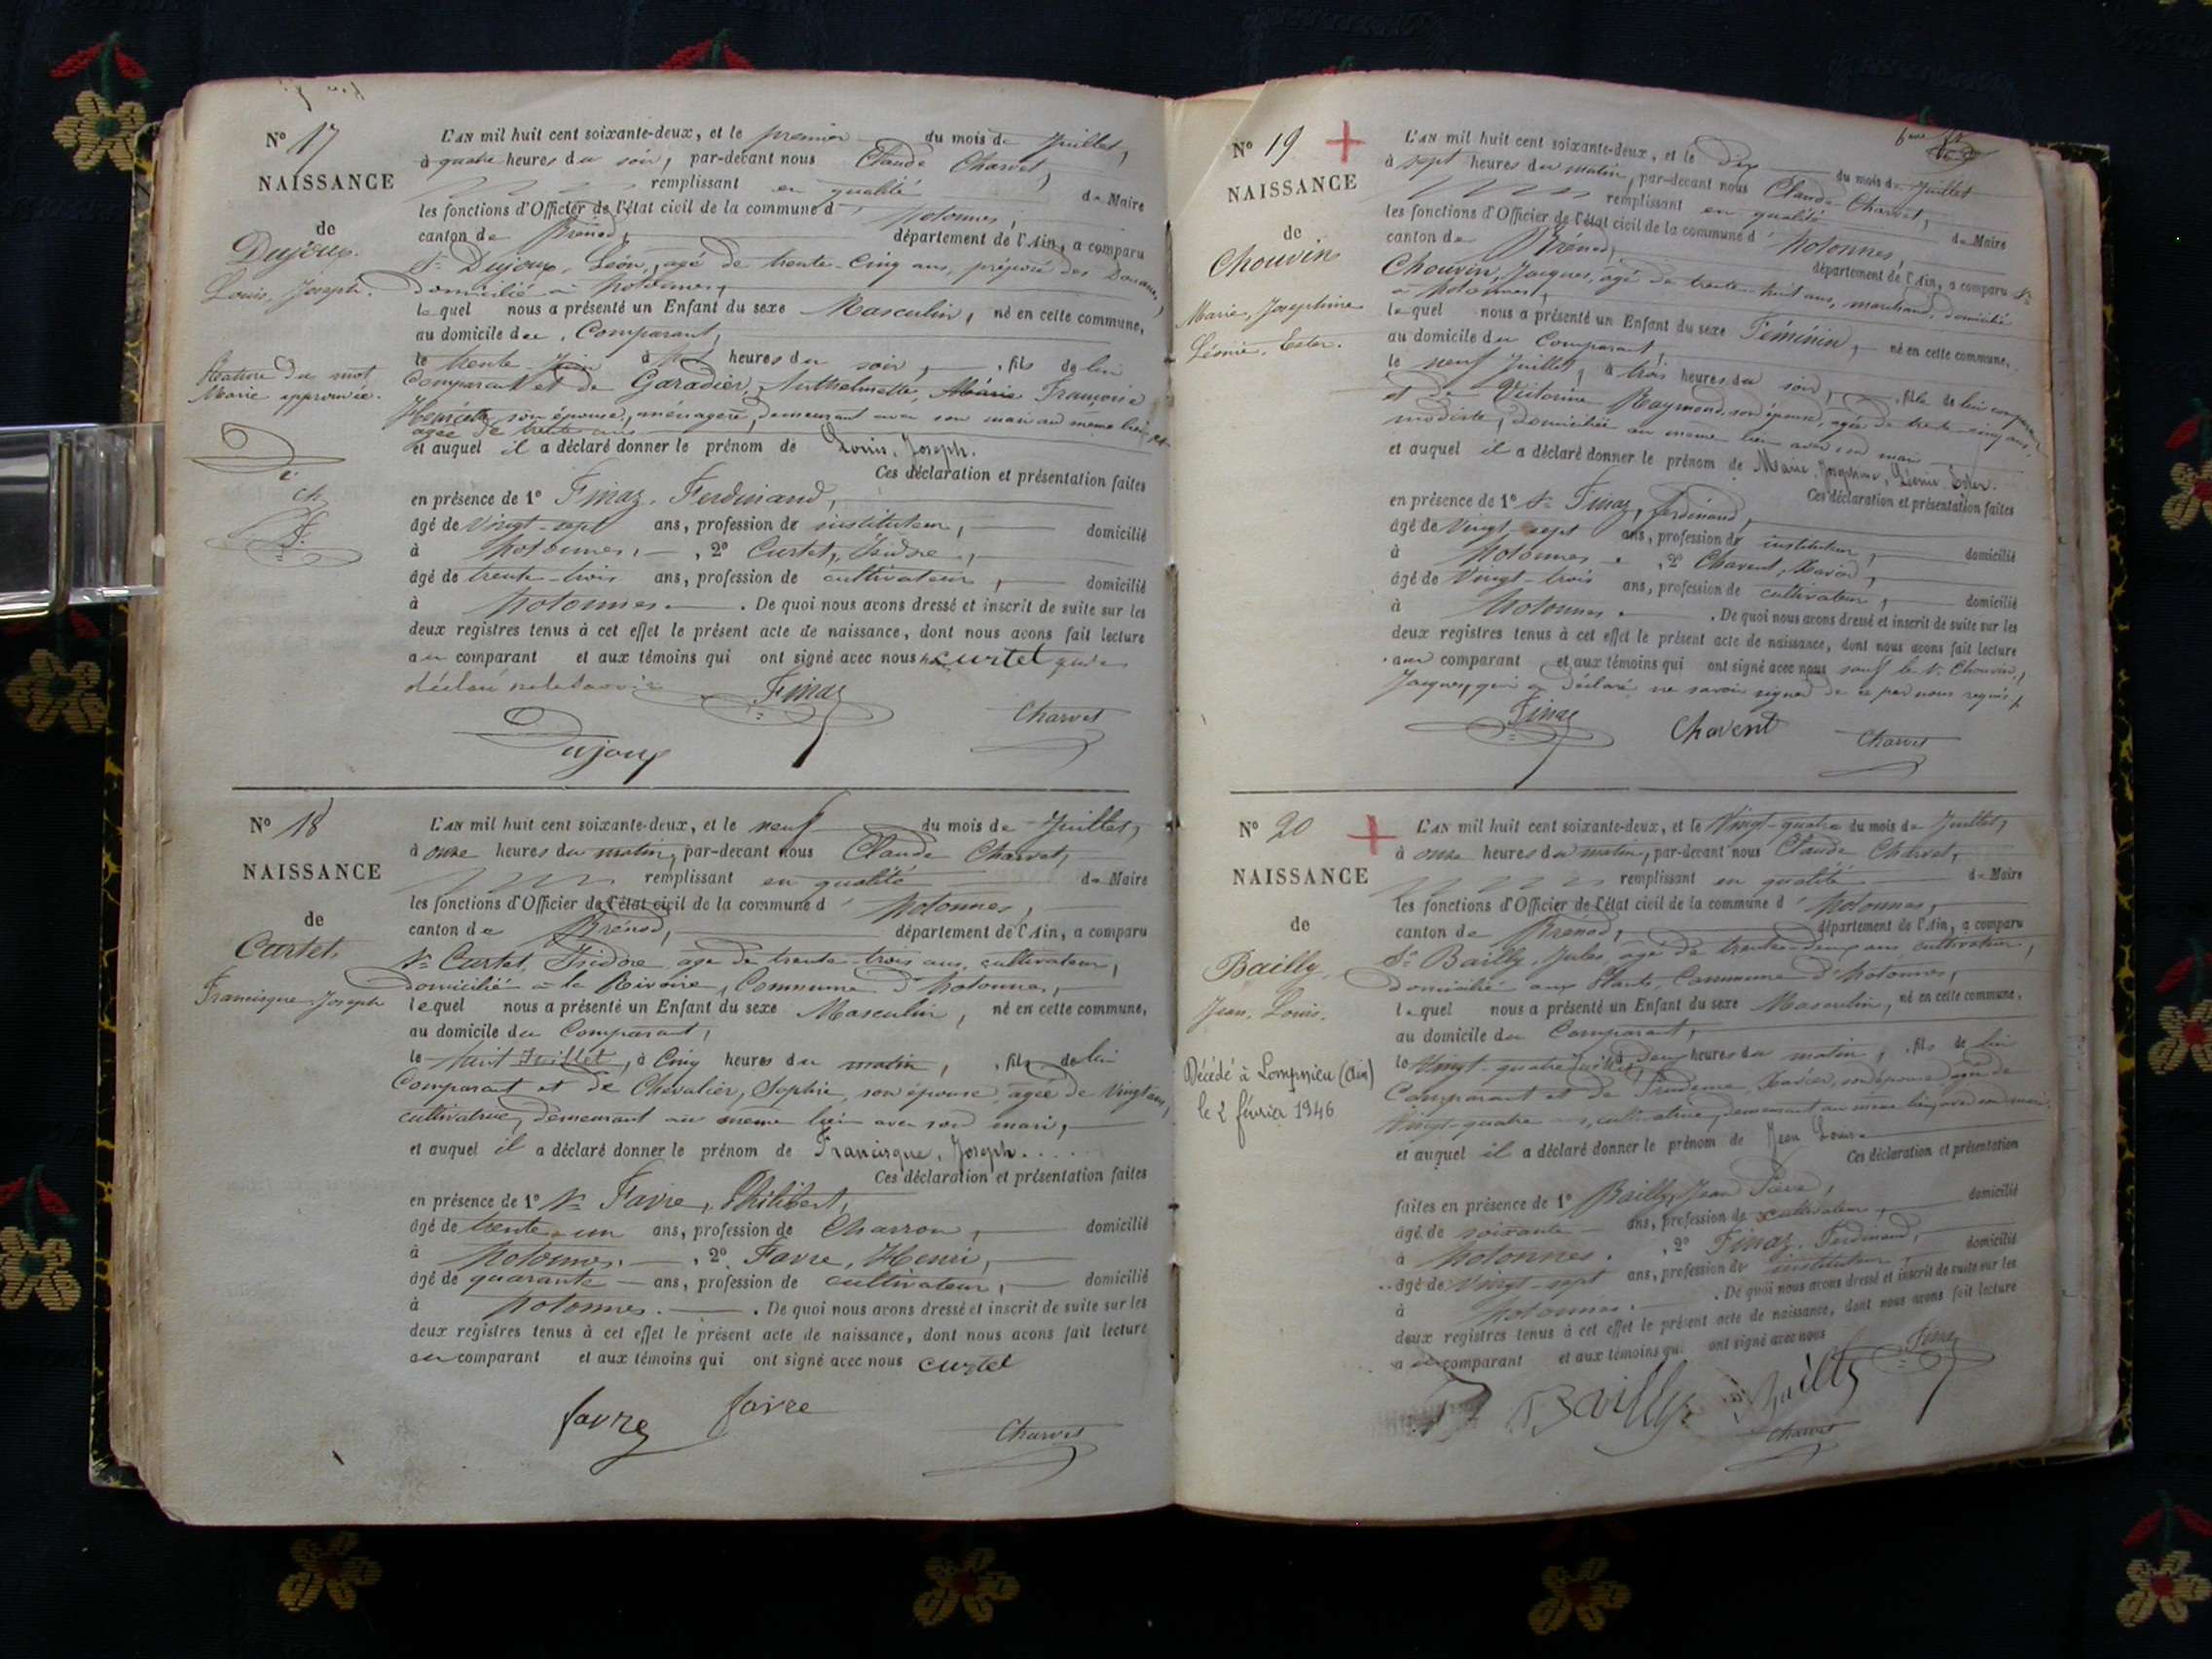 N° 17
NAISSANCE
de
Dujoux.
Louis, Joseph.
Rature du mot
Marie approuvée.
L'AN mil huit cent soixante-deux, et le premier du mois de Juillet,
à quatre heures du soir, par-devant nous Claude Charvet,
remplissant en qualité de Maire
les fonctions d'Officier de l'état civil de la commune d'hotonnes,
canton de Brénod, département de l'Ain, a comparu
Sr Dujoux, Léon, agé de trente-cinq ans, préposé des Douanes,
domicilié à hotonnes,
lequel nous a présenté un Enfant du sexe Masculin, né en cette commune,
au domicile du Comparant,
le trente Juin à heures du soir, fils de lui
Comparant et de Garadier, Anthelmette, Marie Françoise
son épouse, ménagère, demeurant avec son mari au même lieu
agée de trente ans
et auquel il a déclaré donner le prénom de Louis, Joseph.
Ces déclaration et présentation faites
en présence de 1° Finaz, Ferdinand,
âgé de vingt-sept ans, profession de instituteur, domicilié
à hotonnes, 2° Curtet, Isidore,
âgé de trente-trois ans, profession de cultivateur, domicilié
à hotonnes. De quoi nous avons dressé et inscrit de suite sur les
deux registres tenus à cet effet le présent acte de naissance, dont nous avons fait lecture
au comparant et aux témoins qui ont signé avec nous curtet qui a
déclaré ne le savoir
Finaz
Charvet
Dujoux
N° 18
NAISSANCE
de
Curtet,
Francisque Joseph
L'AN mil huit cent soixante-deux, et le neuf du mois de Juillet,
à onze heures du matin, par-devant nous Claude Charvet,
remplissant en qualité de Maire
les fonctions d'Officier de l'état civil de la commune d'hotonnes,
canton de Brénod, département de l'Ain, a comparu
Sr Curtet, Isidore agé de trente-trois ans, cultivateur,
domicilié à la Rivoire, Commune d'hotonnes,
lequel nous a présenté un Enfant du sexe Masculin, né en cette commune,
au domicile du Comparant,
le huit Juillet, à Cinq heures du matin, fils de lui
Comparant et de Chevalier, Sophie, son épouse, agée de Vingt ans,
cultivatrice, demeurant au même lieu avec son mari,
et auquel il a déclaré donner le prénom de Francisque, Joseph.
Ces déclaration et présentation faites
en présence de 1° Sr Favre, Philibert,
âgé de trente-un ans, profession de Charron, domicilié
à hotonnes. 2° Favre, Henri,
âgé de quarante ans, profession de cultivateur, domicilié
à hotonnes. De quoi nous avons dressé et inscrit de suite sur les
deux registres tenus à cet effet le présent acte de naissance, dont nous avons fait lecture
au comparant et aux témoins qui ont signé avec nous curtet
favre favre
Charvet
N° 19
NAISSANCE
de
Chouvin
Marie, Joséphine
Léonie, Ester.
L'AN mil huit cent soixante-deux, et le dix du mois de Juillet
à sept heures du matin, par-devant nous Claude Charvet,
remplissant en qualité de Maire
les fonctions d'Officier de l'état civil de la commune d'hotonnes,
canton de Brénod, département de l'Ain, a comparu Sr
Chouvin, Jacques, agé de trente-huit ans, marchand, domicilié
à hotonnes,
lequel nous a présenté un Enfant du sexe Féminin, né en cette commune,
au domicile du Comparant,
le neuf Juillet, à trois heures du soir, fille de lui comparant
et de Victorine Raymond, son épouse, agée de trente-cinq ans,
modiste, domiciliée au même lieu avec son mari
et auquel il a déclaré donner le prénom de Marie, Joséphine, Léonie, Ester.
Ces déclaration et présentation faites
en présence de 1° Sr Finaz, ferdinand,
âgé de Vingt-sept ans, profession de instituteur, domicilié
à hotonnes. 2° Chavent, Xavier,
âgé de Vingt-trois ans, profession de cultivateur, domicilié
à hotonnes. De quoi nous avons dressé et inscrit de suite sur les
deux registres tenus à cet effet le présent acte de naissance, dont nous avons fait lecture
au comparant et aux témoins qui ont signé avec nous sauf le Sr Chouvin,
Jacques, qui a déclaré ne savoir signer de ce par nous requis,
Finaz
Chavent
Charvet
N° 20
NAISSANCE
de
Bailly,
Jean, Louis.
Décédé à Lompnieu (Ain)
le 2 février 1946
L'AN mil huit cent soixante-deux, et le Vingt-quatre du mois de Juillet,
à onze heures du matin, par-devant nous Claude Charvet,
remplissant en qualité de Maire
les fonctions d'Officier de l'état civil de la commune d'hotonnes,
canton de Brénod, département de l'Ain, a comparu
Sr Bailly, Jules, agé de trente-deux ans cultivateur,
domicilié aux Plants, Commune d'hotonnes,
lequel nous a présenté un Enfant du sexe Masculin, né en cette commune,
au domicile du Comparant,
le Vingt-quatre Juillet, à deux heures du matin, fils de lui
Comparant et de son épouse agée de
Vingt-quatre ans, cultivatrice, demeurant au même lieu, avec son mari.
et auquel il a déclaré donner le prénom de Jean Louis
Ces déclaration et présentation
faites en présence de 1° Bailly, Jean Pierre,
âgé de soixante ans, profession de cultivateur, domicilié
à hotonnes. 2° Finaz, Ferdinand,
âgé de Vingt-sept ans, profession de instituteur domicilié
à hotonnes. De quoi nous avons dressé et inscrit de suite sur les
deux registres tenus à cet effet le présent acte de naissance, dont nous avons fait lecture
au comparant et aux témoins qui ont signé avec nous
Finaz
Bailly Bailly
Charvet